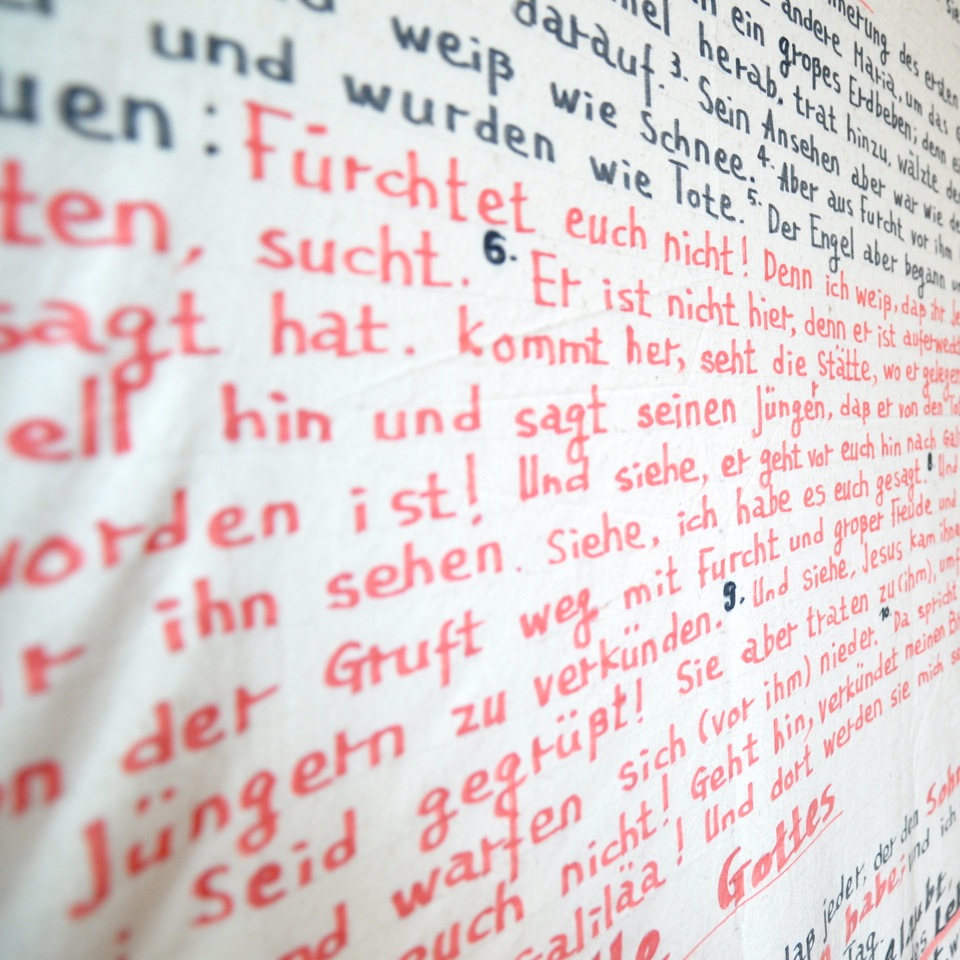 des ersten
andere Maria, um das
ein großes Erdbeben; denn
herab, trat hinzu, wälzte
darauf. 3. Sein Ansehen aber war wie
weiß wie Schnee. 4. Aber aus Furcht vor ihm
und wurden wie Tote. 5. Der Engel aber begann
uen: Fürchtet euch nicht! Denn ich weiß, daß ihr Je
ten, sucht. 6. Er ist nicht hier, denn er ist auferweckt
sagt hat. Kommt her, seht die Stätte, wo er gelegen
ell hin und sagt seinen Jüngern, daß er von den Tot
worden ist! Und siehe, er geht vor euch hin nach Gali
r ihn sehen. Siehe, ich habe es euch gesagt. 8. Und
n der Gruft weg mit Furcht und großer Freude und
Jüngern zu verkünden. 9. Und siehe, Jesus kam ihne
Seid gegrüßt! Sie aber traten zu (ihm), umf
nd warfen sich (vor ihm) nieder. 10. Da spricht
euch nicht! Geht hin, verkündet meinen Br
Galiläa! Und dort werden sie mich se
Gottes
daß jeder, der den Sohn
habe; und ich
Tag.
glaubt,